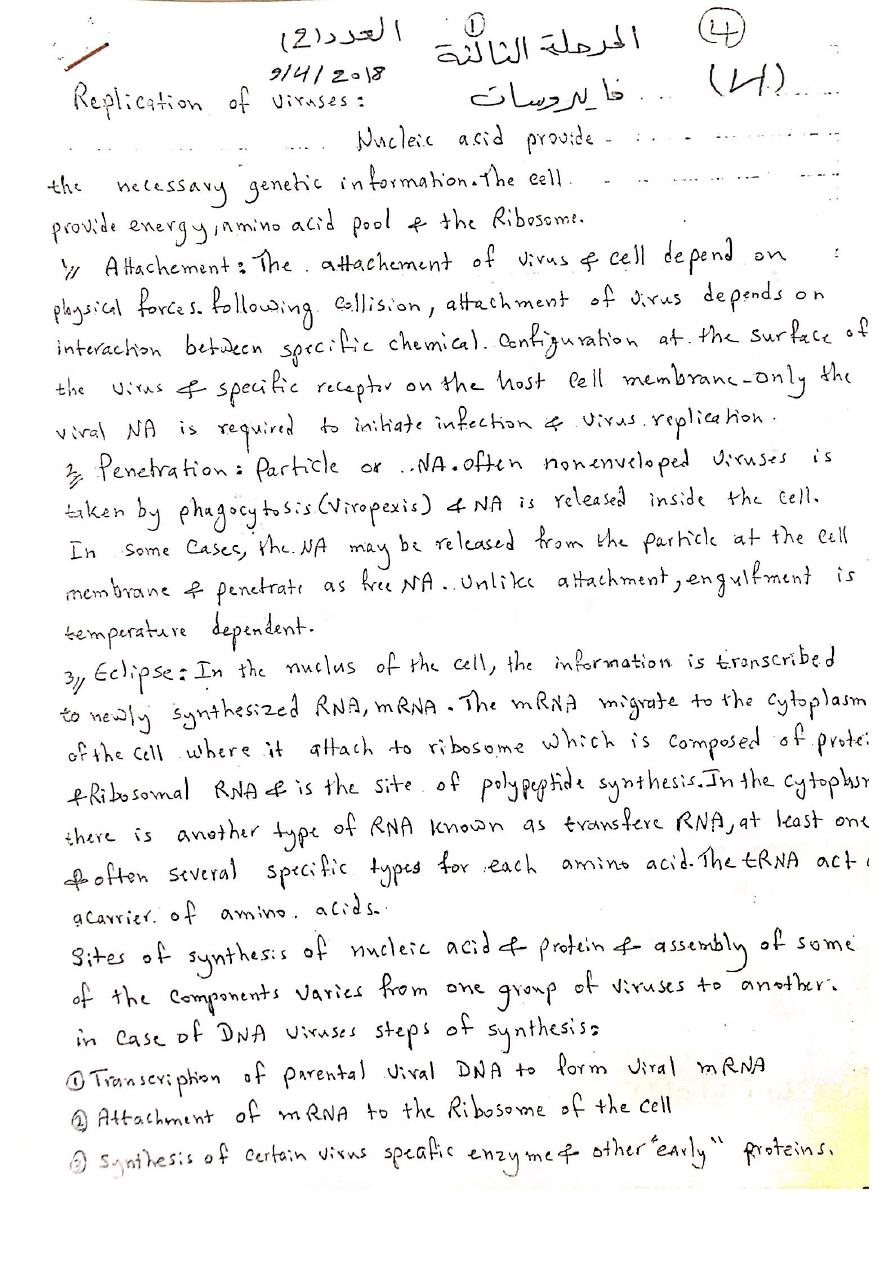 العدد(2) ① المرحلة الثالثة ④
9/4/2018 فايروسات (4)
Replication of viruses:
Nucleic acid provide
the necessary genetic information. The cell
provide energy, amino acid pool & the Ribosome.
1// Attachement: The attachement of virus & cell depend on
physical forces. following collision, attachment of virus depends on
interaction between specific chemical. Configuration at the surface of
the virus & specific receptor on the host cell membrane-only the
viral NA is required to initiate infection & virus replication.
2// Penetration: Particle or NA. often nonenveloped viruses is
taken by phagocytosis (Viropexis) & NA is released inside the cell.
In some cases, the NA may be released from the particle at the cell
membrane & penetrate as free NA. Unlike attachment, engulfment is
temperature dependent.
3// Eclipse: In the nuclus of the cell, the information is transcribed
to newly synthesized RNA, mRNA. The mRNA migrate to the cytoplasm
of the cell where it attach to ribosome which is composed of protei
& Ribosomal RNA & is the site of polypeptide synthesis. In the cytoplasm
there is another type of RNA known as transfere RNA, at least one
& often several specific types for each amino acid. The tRNA act
a carrier of amino acids.
Sites of synthesis of nucleic acid & protein & assembly of some
of the components varies from one group of viruses to another.
in case of DNA viruses steps of synthesis:
① Transcription of parental viral DNA to form viral mRNA
② Attachment of mRNA to the Ribosome of the cell
③ Synthesis of certain virus specific enzyme & other "early" proteins.